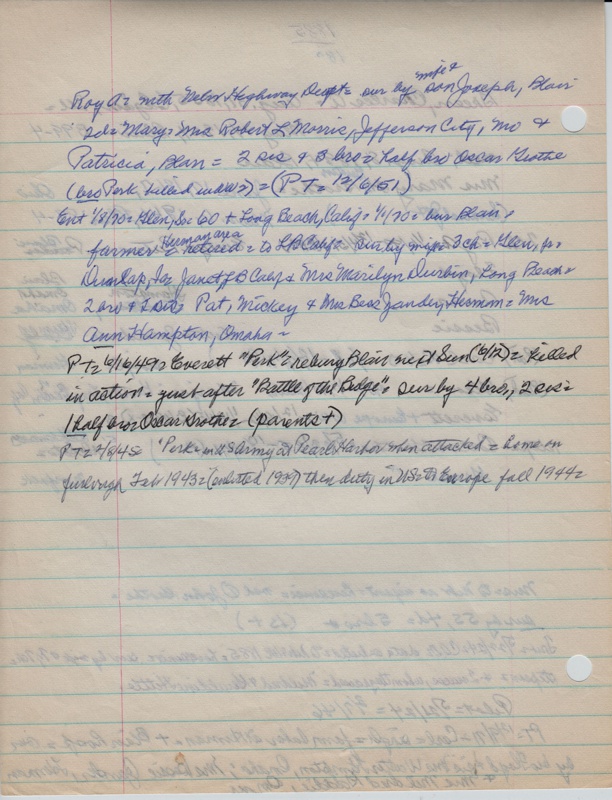 wife &
Roy A = with Nebr Highway Dept = sur by son Joseph, Blair
2 da = Mary = Mrs Robert L Morris, Jefferson City, Mo &
Patricia, Blair = 2 sis & 3 bro = half bro Oscar Grothe
(bro Perk killed in WW 2) = (P T = 12/6/51)
Ent 1/8/70 = Glen, Sr 60 + Long Beach, Calif = 1/ /70 = bur Blair =
farmer Herman area & retired = to LB Calif = sur by wife = 3 ch = Glen, Jr =
Dunlap, Ia = Janet, LB Calif & Mrs Marilyn Durbin, Long Beach =
2 bro & 2 sis = Pat, Mickey & Mrs Bess Zander, Herman = Mrs
Ann Hampton, Omaha =
P T = 6/16/49 = Everett "Perk" = rebury Blair next Sun (6/12) = killed
in action = just after "Battle of the Bulge" = sur by 4 bro, 2 sis =
1 half bro = Oscar Grothe = (parents +)
P T = 2/8/45 = "Perk = in US Army at Pearl Harbor when attacked = home on
furlough Feb 1943 = (enlisted 1939) then duty in US = to Europe fall 1944 =